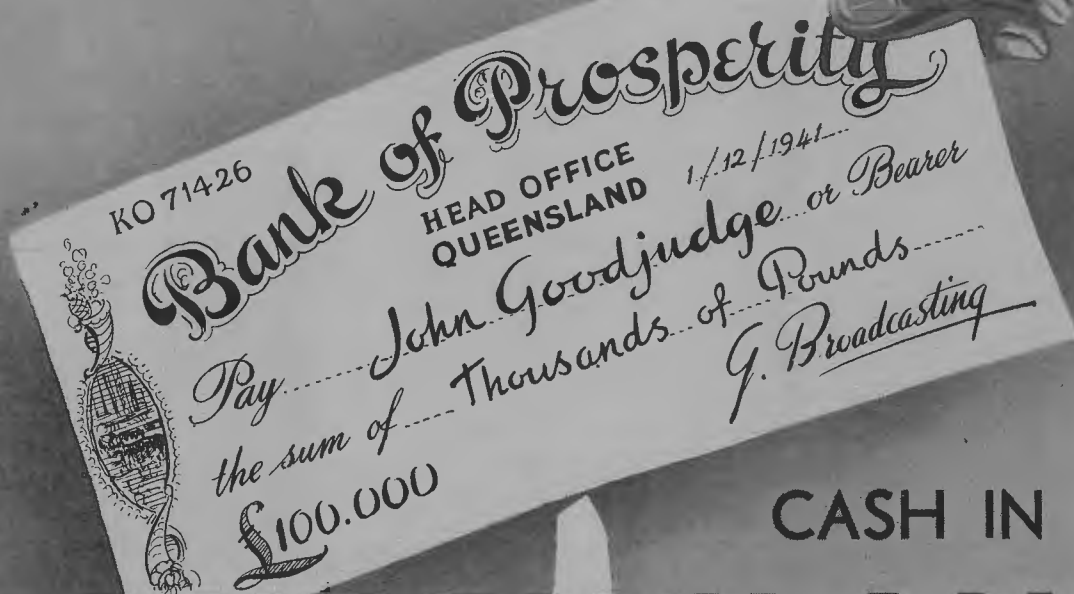 KO 71426
Bank of Prosperity
HEAD OFFICE
QUEENSLAND
1/12/1941
Pay John Goodjudge or Bearer
the sum of Thousands of Pounds
£100.000
G. Broadcasting
CASH IN